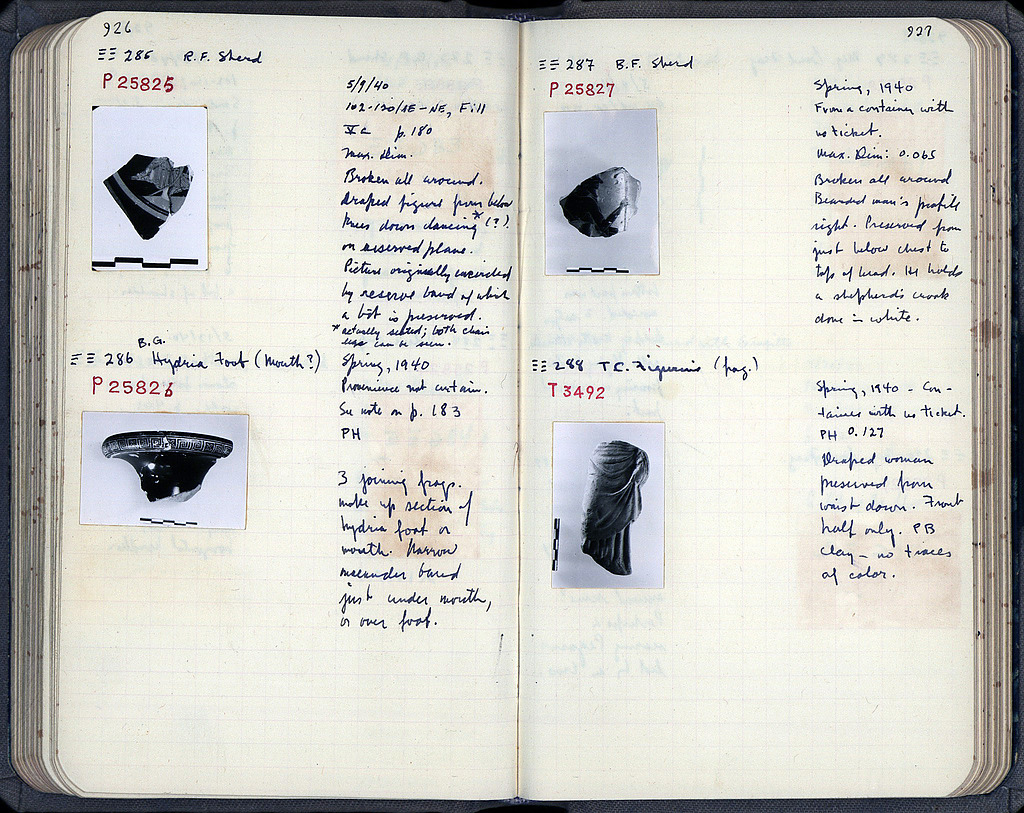 926
ΞΞ 285 R.F. Sherd
P 25825
5/9/40
102-130/ΛE-NE, Fill
V c p. 180
Max. dim.
Broken all around.
Draped figure from below
knees down dancing* (?)
on reserved plane.
Picture originally encircled
by reserve band of which
a bit is preserved.
* actually seated; both chair
legs can be seen.
B.G.
ΞΞ 286 Hydria Foot (Mouth?)
P 25826
Spring, 1940
Provenience not certain.
See note on p. 183
PH
3 joining frags.
make up section of
hydria foot or
mouth. Narrow
meander band
just under mouth,
or over foot.
927
ΞΞ 287 B.F. Sherd
P 25827
Spring, 1940
From a container with
no ticket.
Max. Dim: 0.065
Broken all around
Bearded man's profile
right. Preserved from
just below chest to
top of head. He holds
a shepherd's crook
done in white.
ΞΞ 288 T.C. Figurine (frag.)
T 3492
Spring, 1940 - Con-
tainer with no ticket.
PH 0.127
Draped woman
preserved from
waist down. Front
half only. PB
clay - no traces
of color.